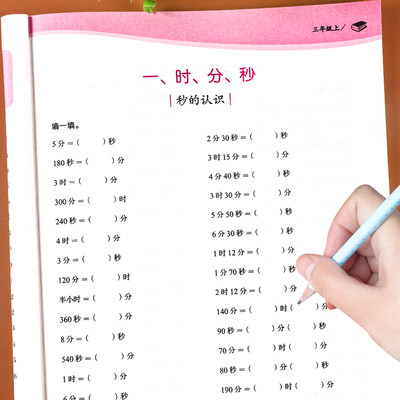 三年级上
一、时、分、秒
秒的认识
填一填。
5分=( )秒
180秒=( )分
3时=( )分
300分=( )时
240秒=( )分
4时=( )分
3分=( )秒
120分=( )时
半小时=( )分
360秒=( )分
8分=( )秒
540秒=( )分
1时=( )分
6分=( )秒
2分30秒=( )秒
3时15分=( )分
4分40秒=( )秒
3时30分=( )分
5分50秒=( )秒
6分30秒=( )秒
1时12分=( )分
1分70秒=( )秒
2时12分=( )分
140分=( )时( )分
90秒=( )分( )秒
70分=( )时( )分
80秒=( )分( )秒
190分=( )时( )分